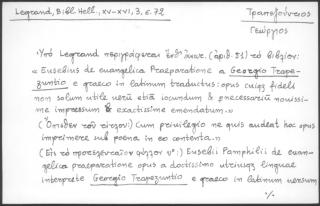 Legrand, Bibl. Hell., XV-XVI, 3, σ. 72
Τραπεζούντιος
Γεώργιος
Ὑπὸ Legrand περιγράφεται (ἀριθ. 81) τὸ βιβλίον:
« Eusebius de euangelica Praeparatione a Georgio Trape-
zuntio e graeco in latinum traductus: opus cuiq3 fideli
non solum utile uerū etiā iocundum & pnecessariū nouissi-
me impressum & exactissime emendatum. »
(Ὄπισθεν τοῦ :) Cum priuilegio ne quis audeat hoc opus
imprimere sub poena in eo contenta.
(Εἰς τὸ :) Eusebii Pamphilii de euan-
gelica praeparatione opus a doctissimo utriusq linguae
interprete Georgio Trapezuntio e graeco in latinum uersum
./.